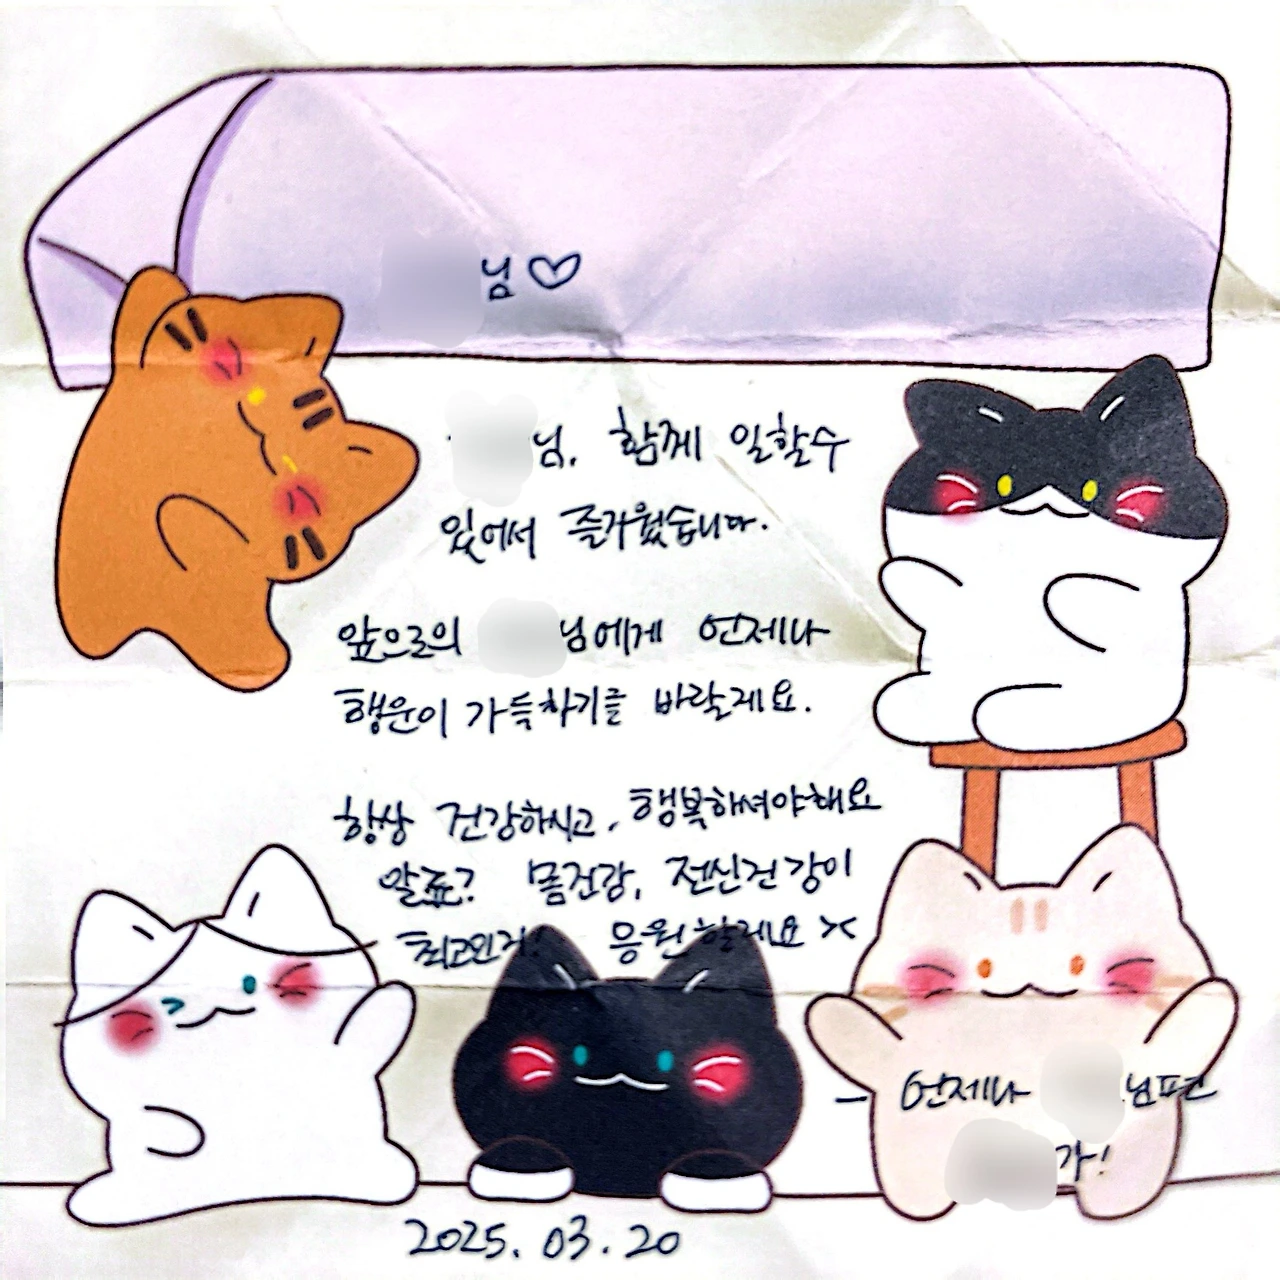 님♡
님, 함께 일할수
있어서 즐거웠습니다.
앞으로의 님에게 언제나
행운이 가득하기를 바랄게요.
항상 건강하시고, 행복하셔야해요
알죠? 몸건강, 정신건강이
최고인거! 응원할게요 ><
- 언제나 님편
가!
2025. 03. 20